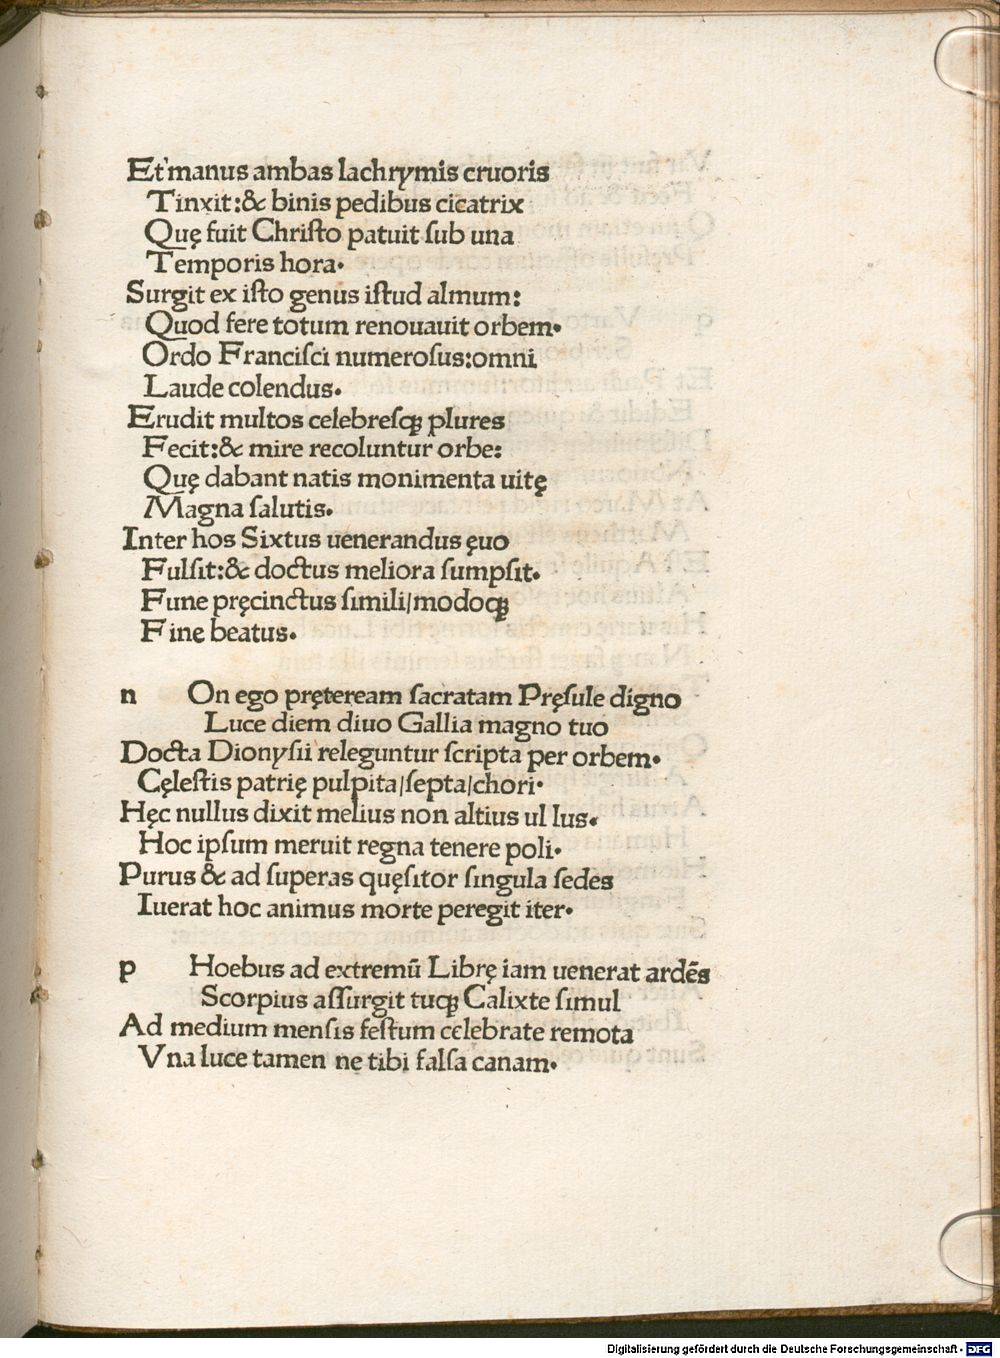 Et manus ambas lachrymis cruoris
Tinxit:& binis pedibus cicatrix
Quę fuit Christo patuit sub una
Temporis hora.
Surgit ex isto genus istud almum:
Quod fere totum renouauit orbem.
Ordo Francisci numerosus:omni
Laude colendus.
Erudit multos celebresqꝫ plures
Fecit:& mire recoluntur orbe:
Quę dabant natis monimenta uitę
Magna salutis.
Inter hos Sixtus uenerandus ęuo
Fulsit:& doctus meliora sumpsit.
Fune pręcinctus simili/modoqꝫ
Fine beatus.
n On ego pręteream sacratam Pręsule digno
Luce diem diuo Gallia magno tuo
Docta Dionysii releguntur scripta per orbem.
Cęlestis patrię pulpita/septa/chori.
Hęc nullus dixit melius non altius ul lus.
Hoc ipsum meruit regna tenere poli.
Purus & ad superas quęsitor singula sedes
Iuerat hoc animus morte peregit iter.
p Hoebus ad extremū Librę iam uenerat ardēs
Scorpius assurgit tuqꝫ Calixte simul
Ad medium mensis festum celebrate remota
Vna luce tamen ne tibi falsa canam.
Digitalisierung gefördert durch die Deutsche Forschungsgemeinschaft - DFG